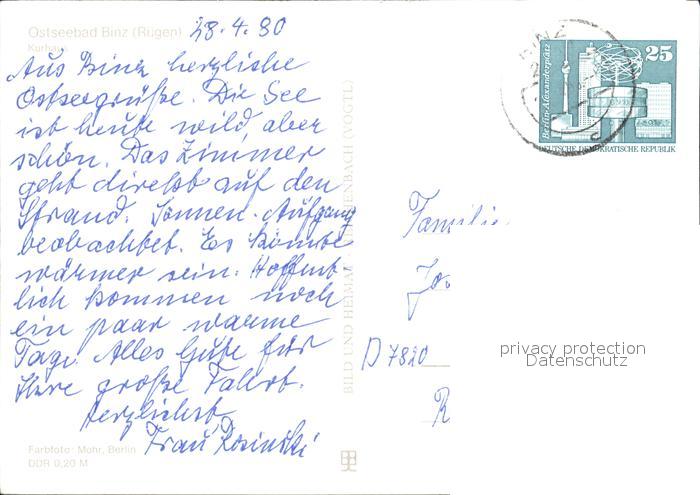 Ostseebad Binz (Rügen) 28.4.80
Kurhaus
Aus Binz herzliche
Ostseegrüße. Die See
ist heute wild, aber
schön. Das Zimmer
geht direkt auf den
Strand. Sonnen-Aufgang
beobachtet. Es könnte
wärmer sein. Hoffent-
lich kommen noch
ein paar warme
Tage. Alles Gute für
Ihre große Fahrt.
Herzlichst
Frau Rosinski
Farbfoto: Mohr, Berlin
DDR 0,20 M
BILD UND HEIMAT REICHENBACH (VOGTL)
BINZ
25
Berlin-Alexanderplatz
DEUTSCHE DEMOKRATISCHE REPUBLIK
Familie
D 7820
privacy protection
Datenschutz